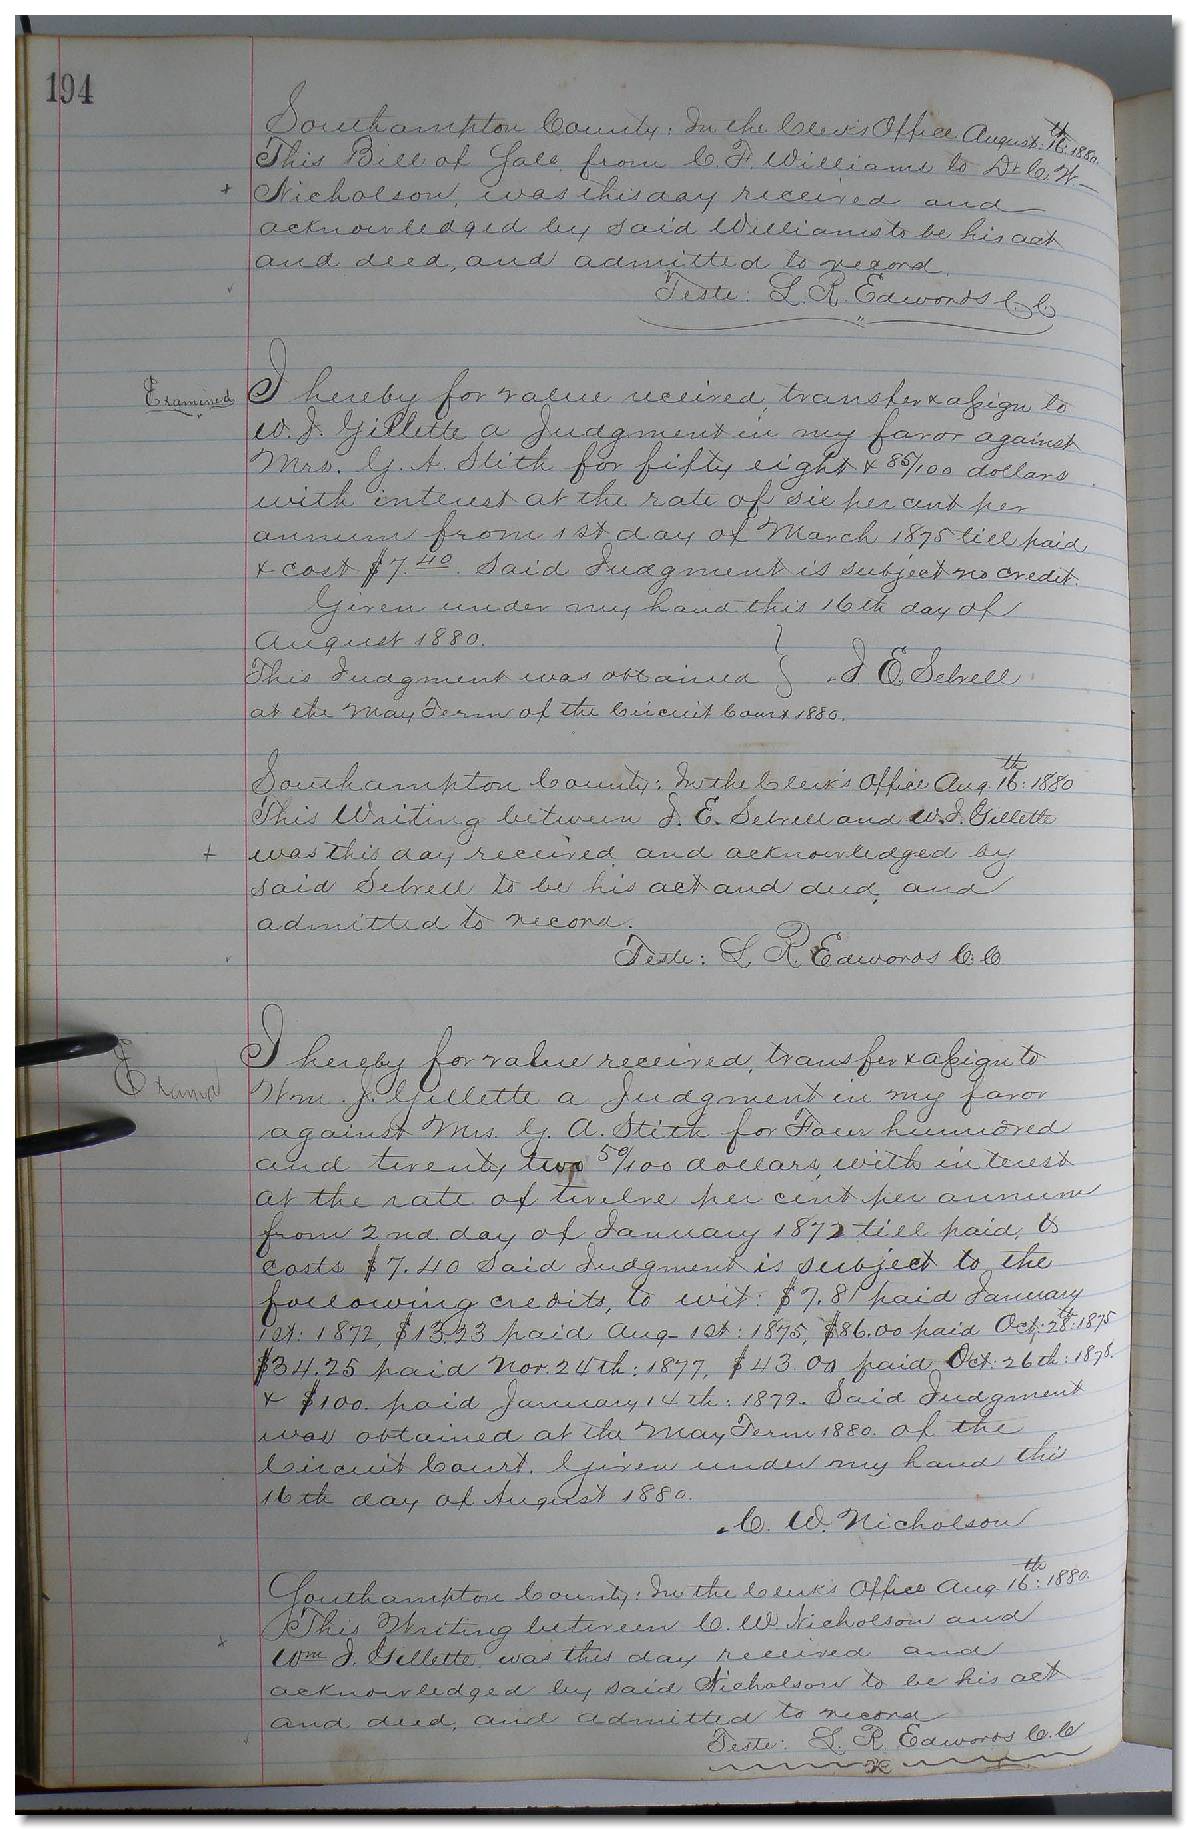 194
Southampton County: In the Clerk's Office August 16th: 1880.
This Bill of Sale, from C. F. Williams to Dr C. W
+ Nicholson, was this day received and
acknowledged by said Williams to be his act
and deed, and admitted to record.
Teste: L. R. Edwards C. C.
Examined I hereby for value received, transfer & assign to
W. J. Gillette a Judgment in my favor against
Mrs. G. A. Stith for fifty eight & 86/100 dollars
with interest at the rate of six per cent per
annum from 1st day of March 1875 till paid
& cost $7.40. Said Judgment is subject no credit.
Given under my hand this 16th day of
August 1880.
This Judgment was obtained } J E Sebrell
at the May Term of the Circuit Court 1880.
Southampton County: In the Clerk's Office Aug. 16th: 1880
This Writing between J. E. Sebrell and W. J. Gillette
+ was this day received and acknowledged by
said Sebrell to be his act and deed, and
admitted to record.
Teste: L R. Edwards C. C
I hereby for value received, transfer & assign to
Examd Wm. J. Gillette a Judgment in my favor
against Mrs. G. A. Stith for Four hundred
and twenty two 50/100 dollars, with interest
at the rate of twelve per cent per annum
from 2nd day of January 1872 till paid, &
costs $7.40 Said Judgment is subject to the
following credits, to wit: $7.81 paid January
1st: 1872, $13.23 paid Aug- 1st: 1875, $86.00 paid Oct. 28th: 1875
$34.25 paid Nov. 24th: 1877, $43.00 paid Oct. 26th: 1878.
& $100. paid January 14th: 1879. Said Judgment
was obtained at the May Term 1880. of the
Circuit Court. Given under my hand this
16th day of August 1880.
C. W. Nicholson
Southampton County: In the Clerk's Office Aug 16th: 1880.
This Writing between C. W. Nicholson and
+ Wm J. Gillette, was this day received and
acknowledged by said Nicholson to be his act
and deed, and admitted to record
Teste: L. R. Edwards C. C